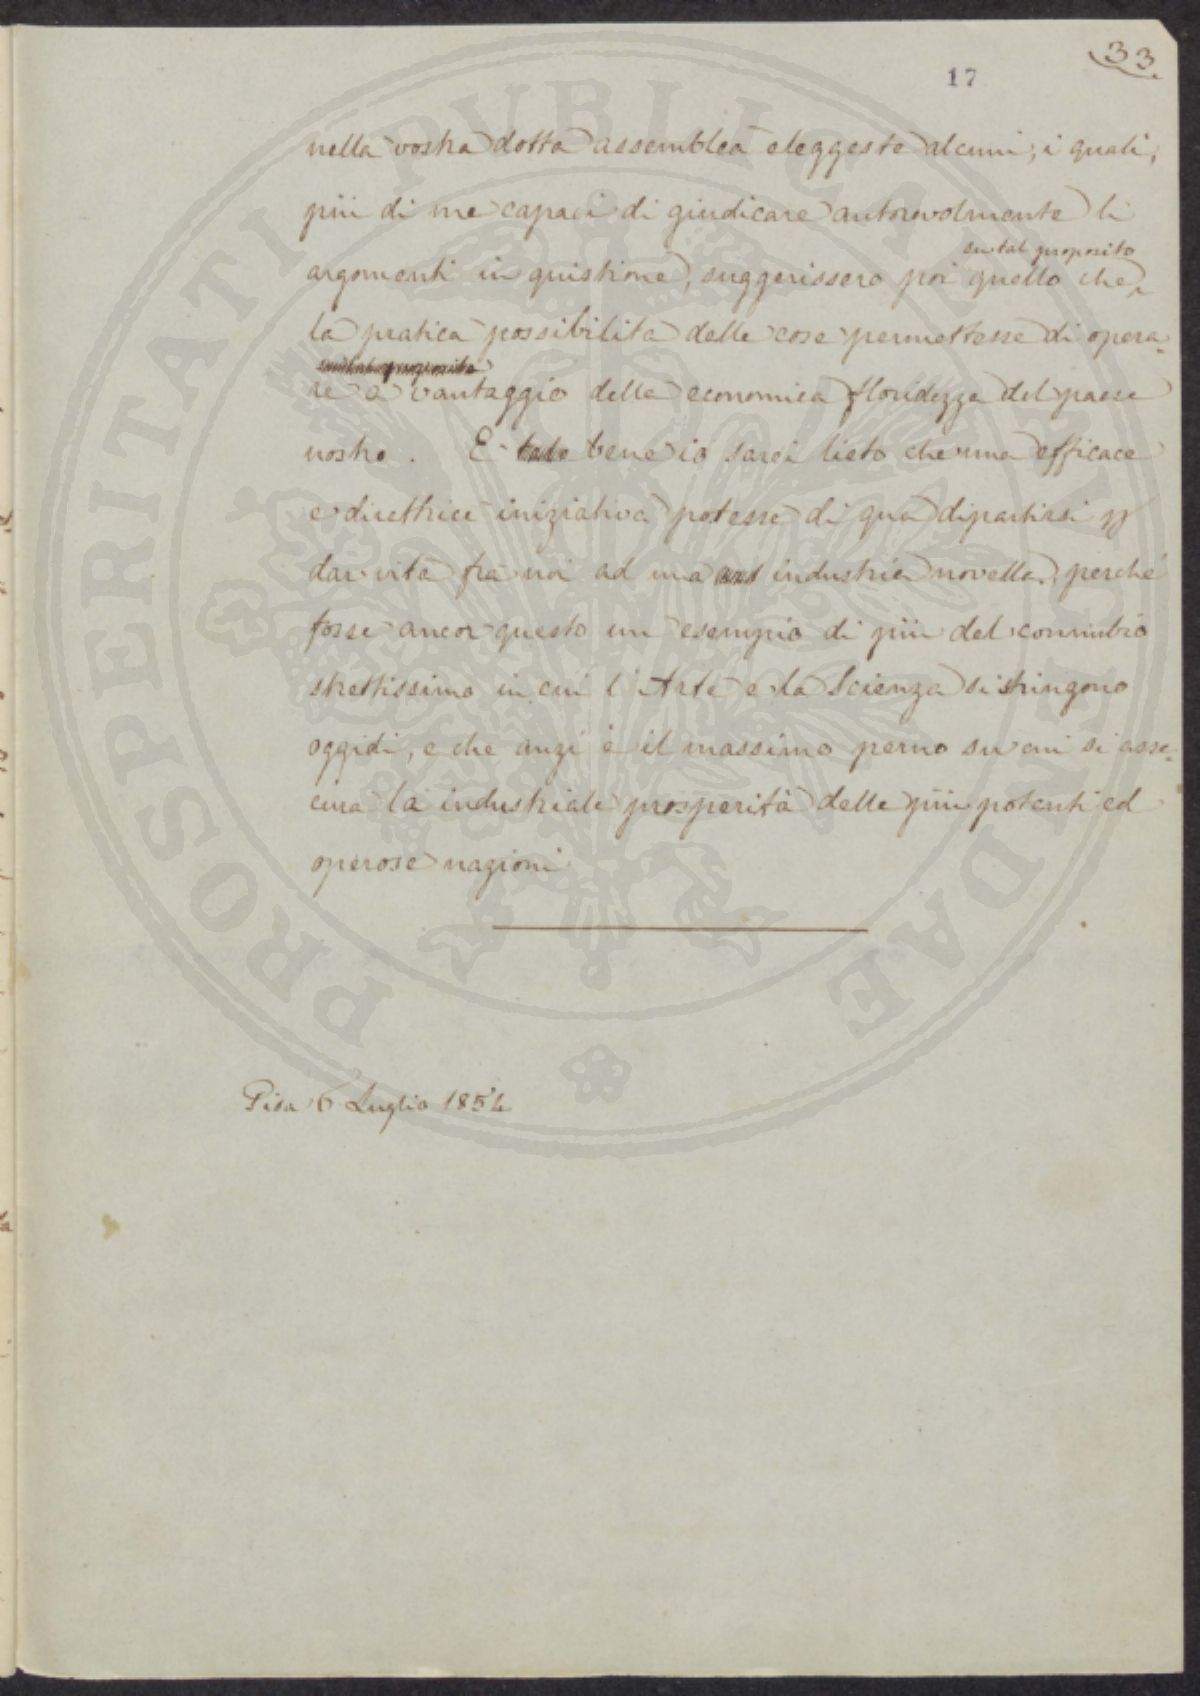 33
17
nella vostra dotta assemblea eleggeste alcuni, i quali,
più di me capaci di giudicare autorevolmente li
su tal proposito
argomenti in quistione, suggerissero poi quello che
la pratica possibilità delle cose permettesse di opera-
su tal proposito
re a vantaggio della economica floridezza del paese
nostro. E bene io sarei lieto che una efficace
e direttrice iniziativa potesse di qua dipartirsi p
dar vita fra noi ad una industria novella, perché
fosse ancor questo un esempio di più del connubio
strettissimo in cui l'Arte e la Scienza si stringono
oggidì, e che anzi è il massimo perno su cui si asse-
cura la industriale prosperità delle più potenti ed
operose nazioni
Pisa 6 Luglio 1854
PROSPERITATI PUBLICAE AUGENDAE